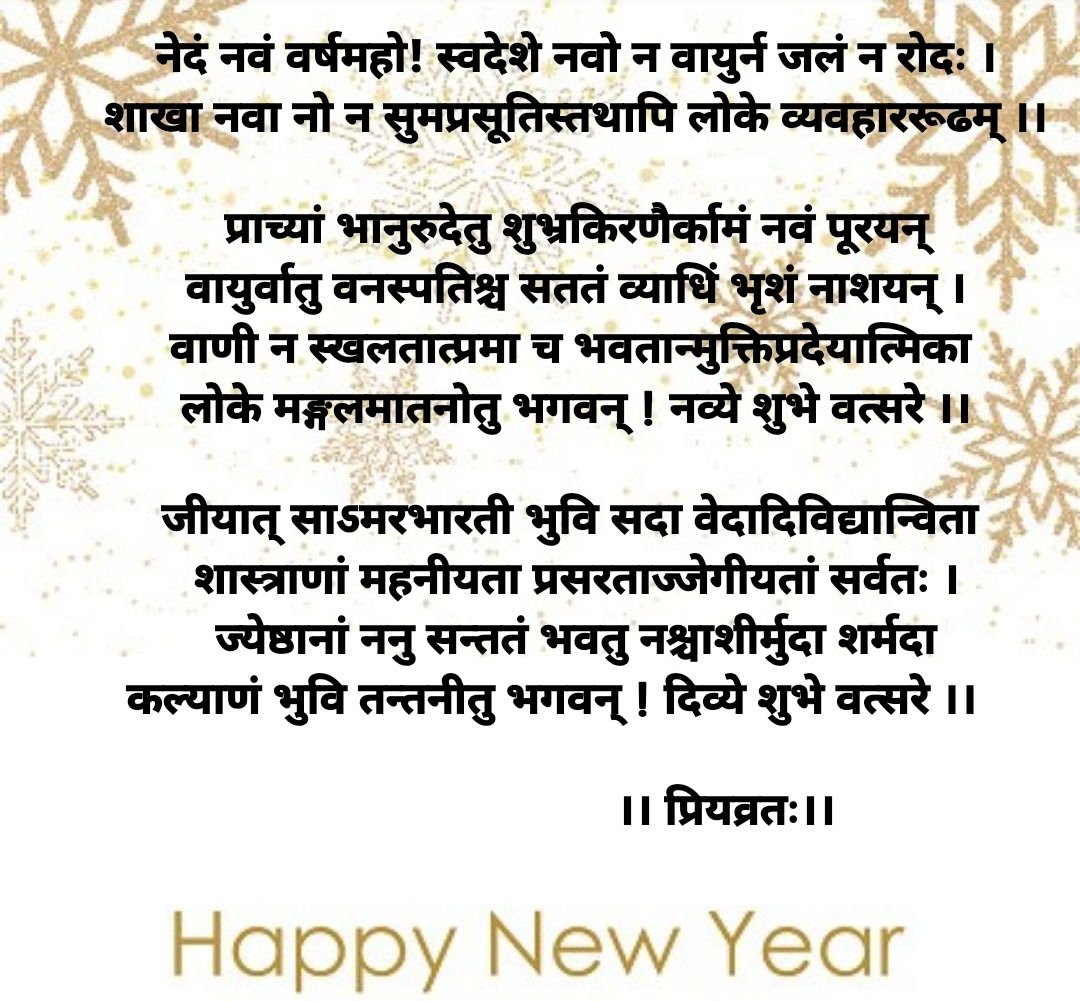 नेदं नवं वर्षमहो! स्वदेशे नवो न वायुर्न जलं न रोदः ।
शाखा नवा नो न सुमप्रसूतिस्तथापि लोके व्यवहाररूढम् ।।
प्राच्यां भानुरुदेतु शुभ्रकिरणैर्कामं नवं पूरयन्
वायुर्वातु वनस्पतिश्च सततं व्याधिं भृशं नाशयन् ।
वाणी न स्खलतात्प्रमा च भवतान्मुक्तिप्रदेयात्मिका
लोके मङ्गलमातनोतु भगवन् ! नव्ये शुभे वत्सरे ।।
जीयात् साऽमरभारती भुवि सदा वेदादिविद्यान्विता
शास्त्राणां महनीयता प्रसरताज्जेगीयतां सर्वतः ।
ज्येष्ठानां ननु सन्ततं भवतु नश्चाशीर्मुदा शर्मदा
कल्याणं भुवि तन्तनीतु भगवन् ! दिव्ये शुभे वत्सरे ।।
।। प्रियव्रतः।।
Happy New Year